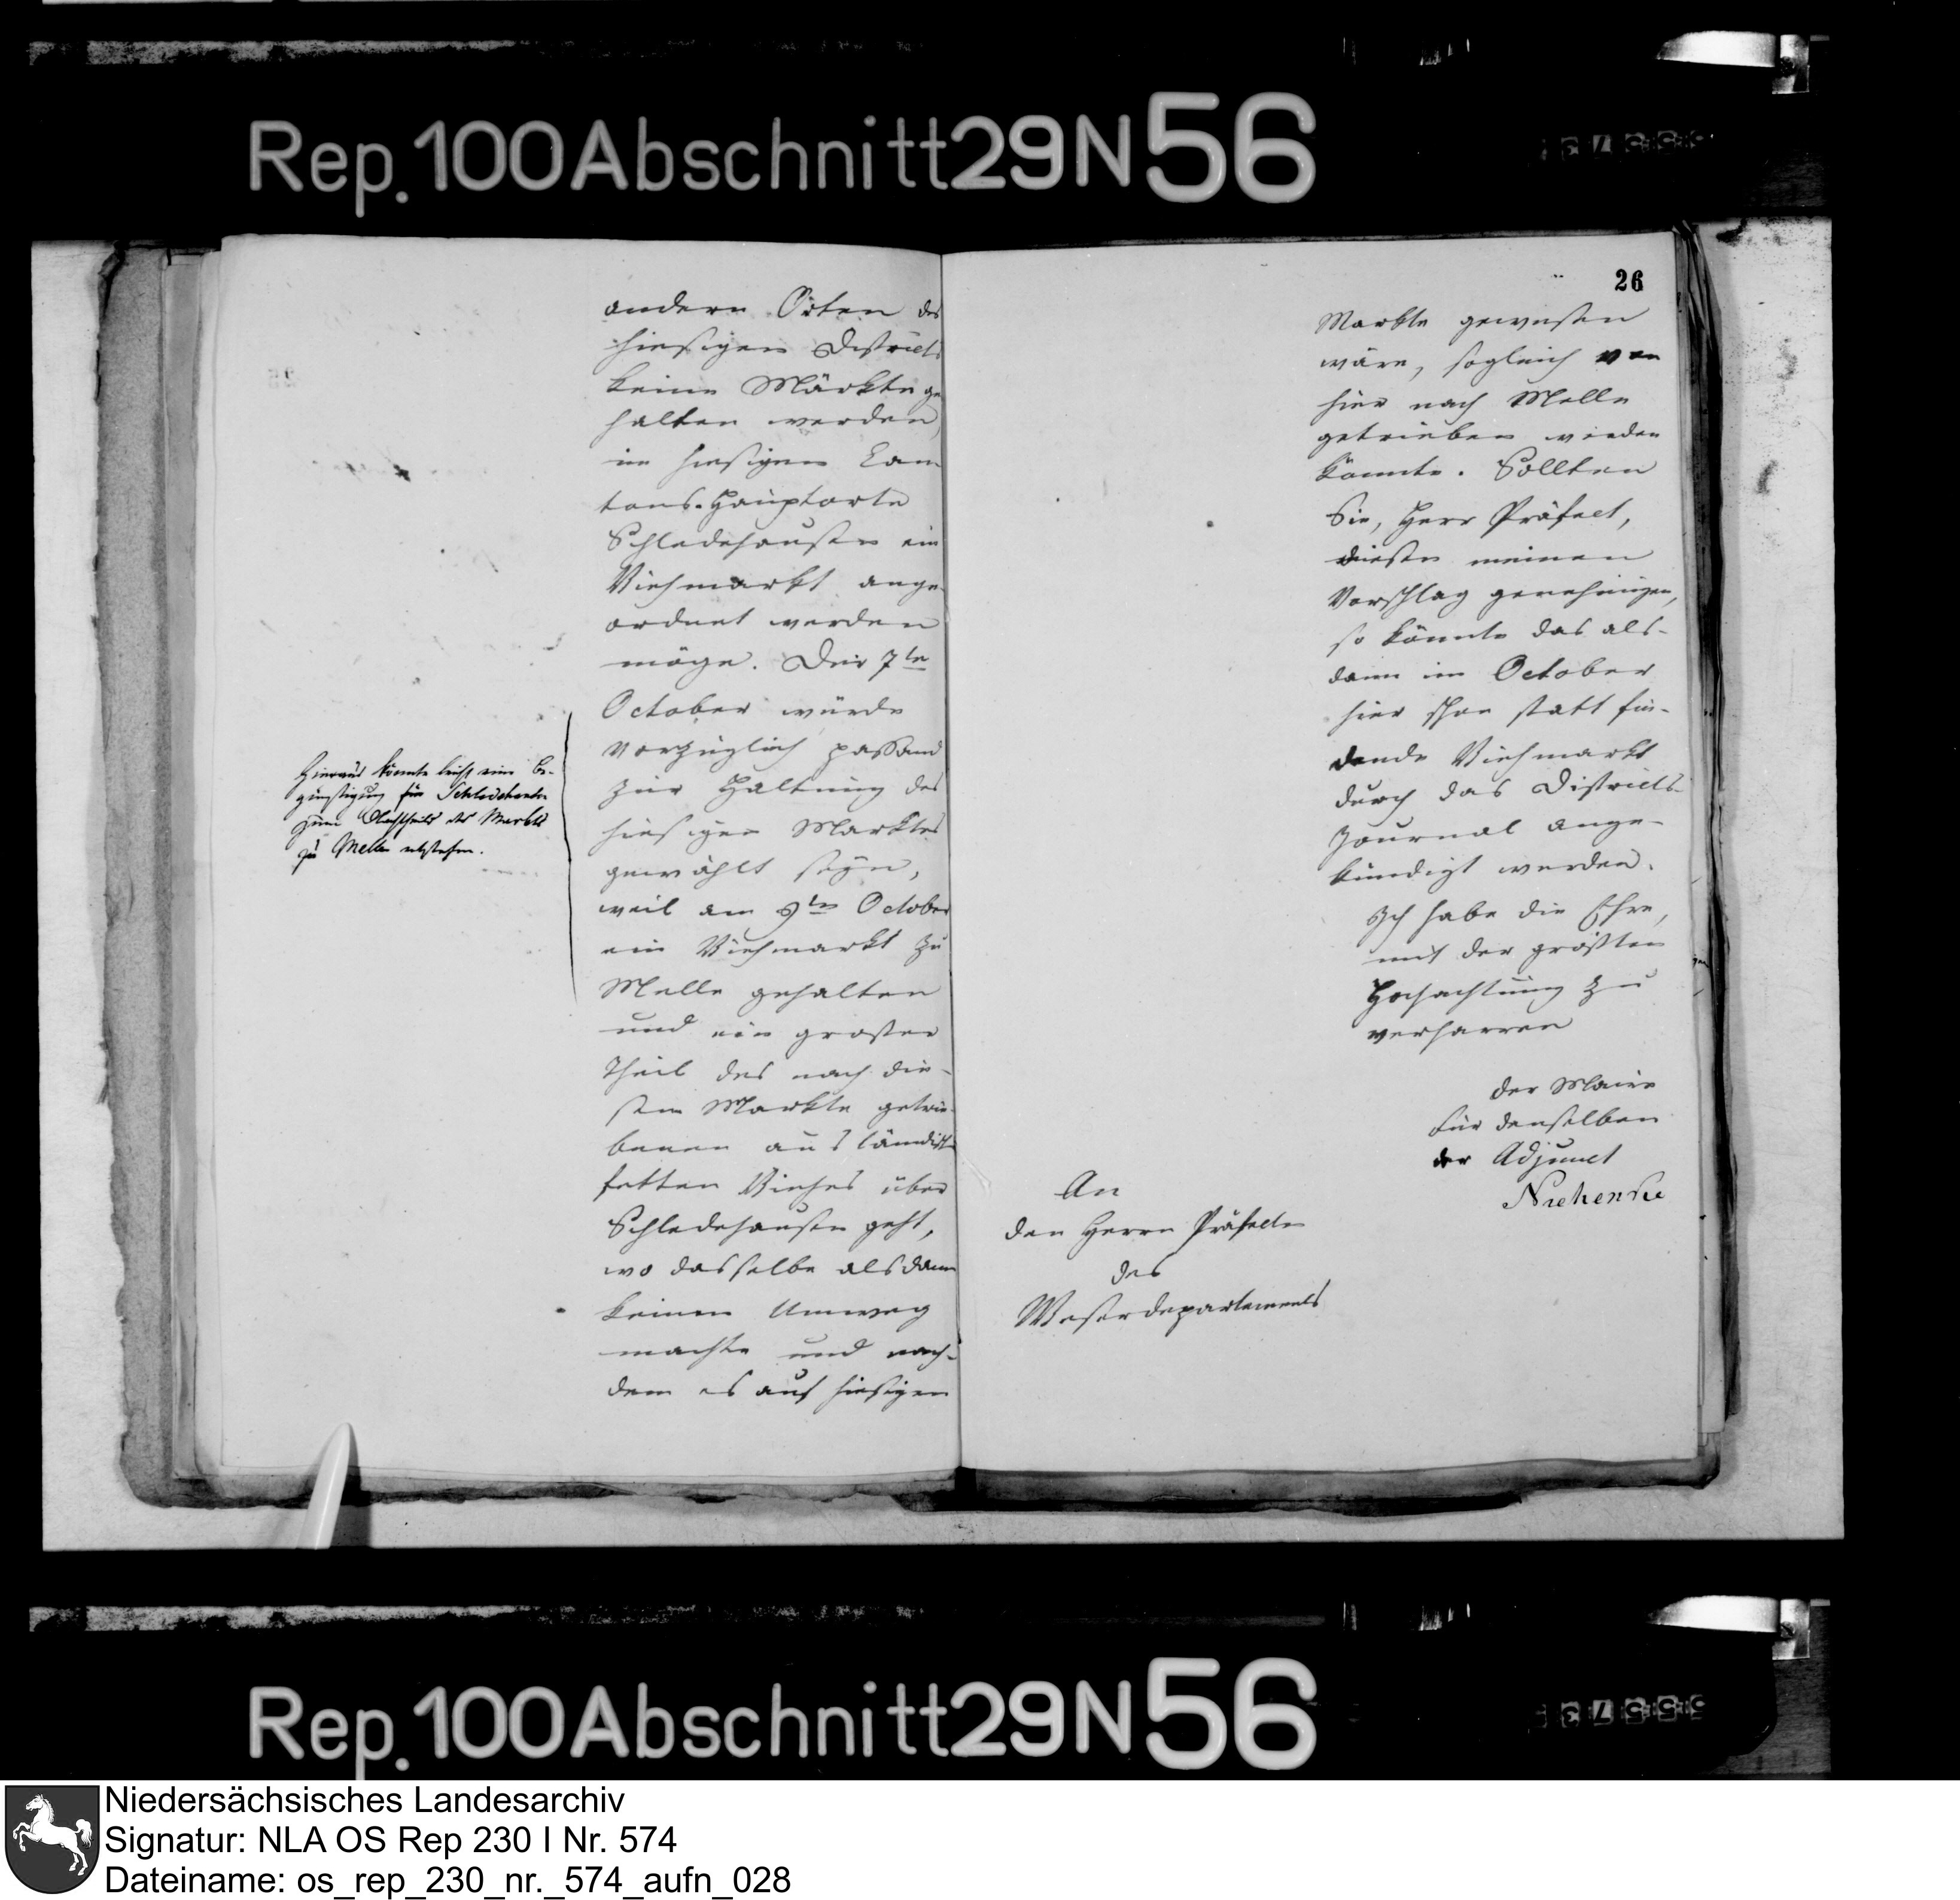 Rep. 100 Abschnitt 29 N 56
andern Orten des
hiesigen Districts
keine Märkte ge
halten werden,
im hiesigen Can
tons-Hauptorte
Schledehausen ein
Viehmarkt ange-
ordnet werden
möge. Der 7te
October würde
vorzüglich passend
zur Haltung des
hiesigen Marktes
gewählt seyn,
weil am 9ten October
ein Viehmarkt zu
Melle gehalten
und ein großer
Theil des nach die-
sem Markte getrie-
benen ausländisch
fetten Viehes über
Schledehausen geht,
wo dasselbe alsdann
keinen Umweg
machte und nach-
dem es auf hiesigen
Hieraus könnte leicht eine Be-
günstigung für Schledehausen
zum Nachtheile des Markts
zu Melle entstehen.
26
Markte gewesen
wäre, sogleich von
hier nach Melle
getrieben werden
könnte. Sollten
Sie, Herr Präfect,
diesen meinen
Vorschlag genehmigen,
so könnte das als-
dann im October
hier schon statt fin-
dende Viehmarkt
durch das Districts-
Journal ange-
kündigt werden.
Ich habe die Ehre,
mit der größten
Hochachtung zu
verharren
der Maire
für denselben
der Adjunct
An
den Herrn Präfecten
des
Weserdepartements
Rep. 100 Abschnitt 29 N 56
Niedersächsisches Landesarchiv
Signatur: NLA OS Rep 230 I Nr. 574
Dateiname: os_rep_230_nr._574_aufn_028